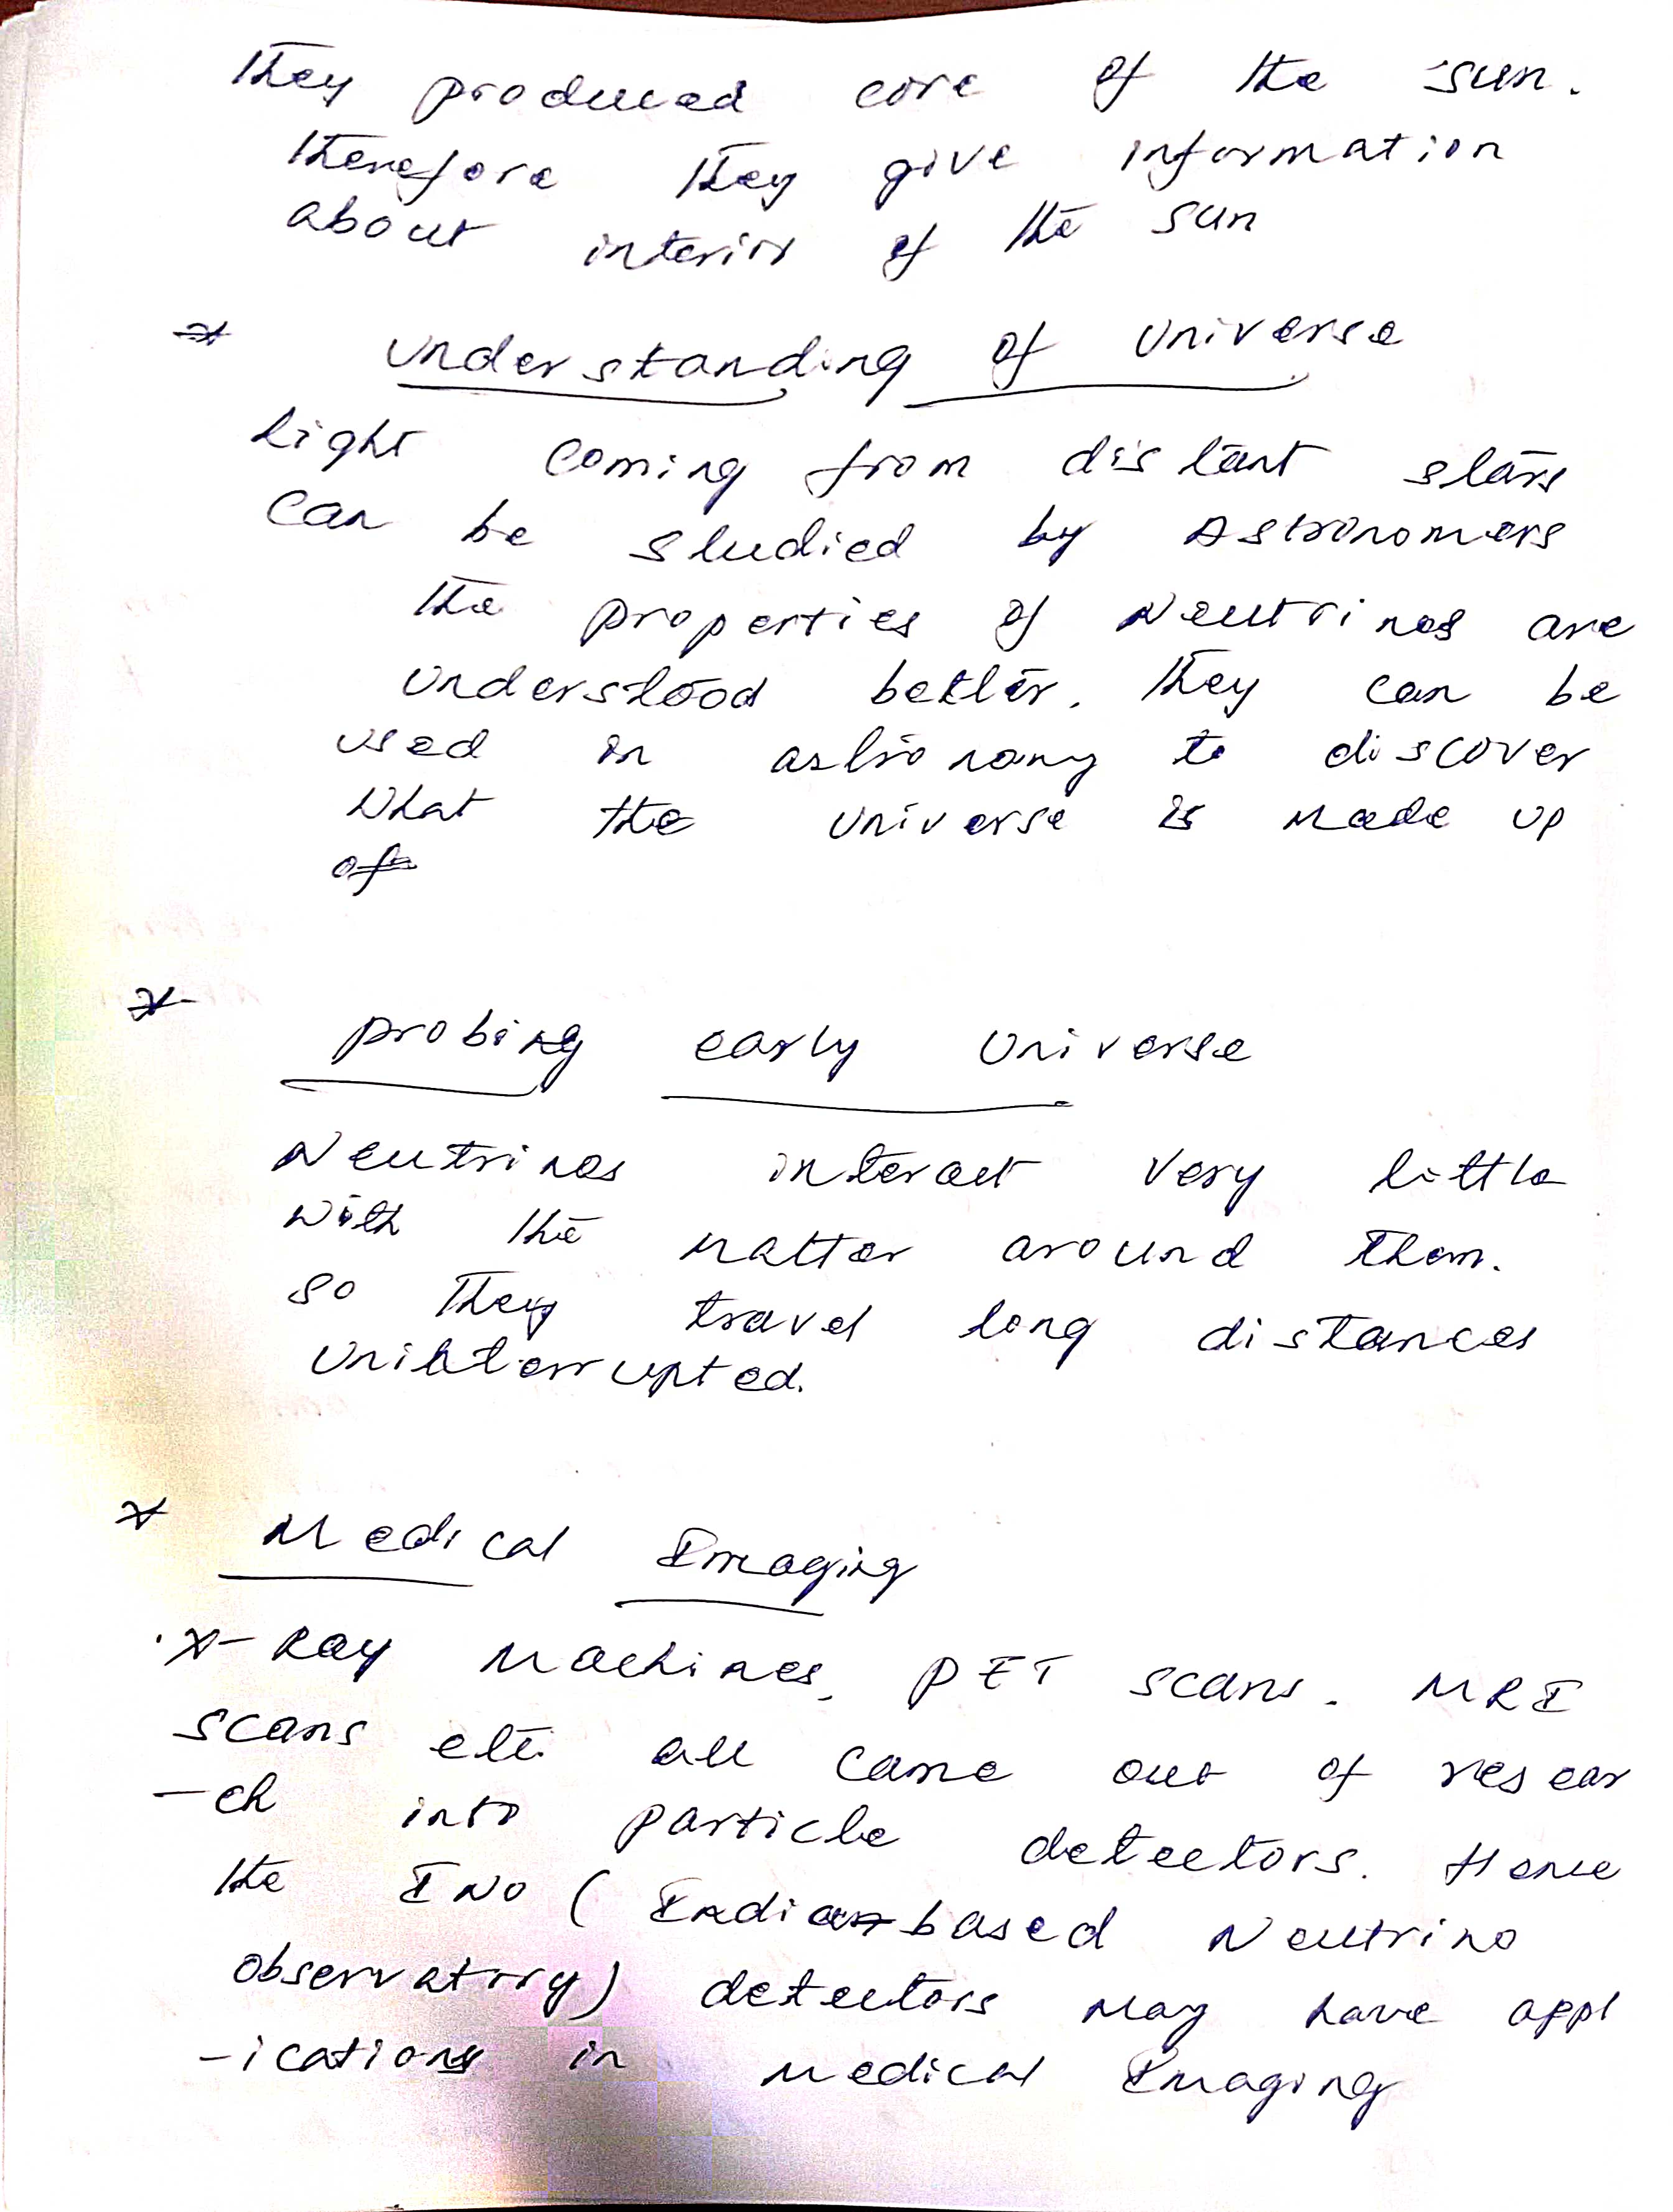 They produced core of the sun.
therefore they give information
about interior of the sun
* Understanding of Universe
Light coming from distant stars
can be studied by Astronomers
the properties of Neutrinos are
understood better. They can be
used in astronomy to discover
what the universe is made up
of
* probing early Universe
Neutrinos interact very little
with the matter around them.
so they travel long distances
uninterrupted.
* Medical Imaging
X-Ray Machines, PET scans. MRI
scans etc. all came out of resear
-ch into particle detectors. Hence
the INO (Indian based Neutrino
observatory) detectors may have appl
-ications in Medical Imaging